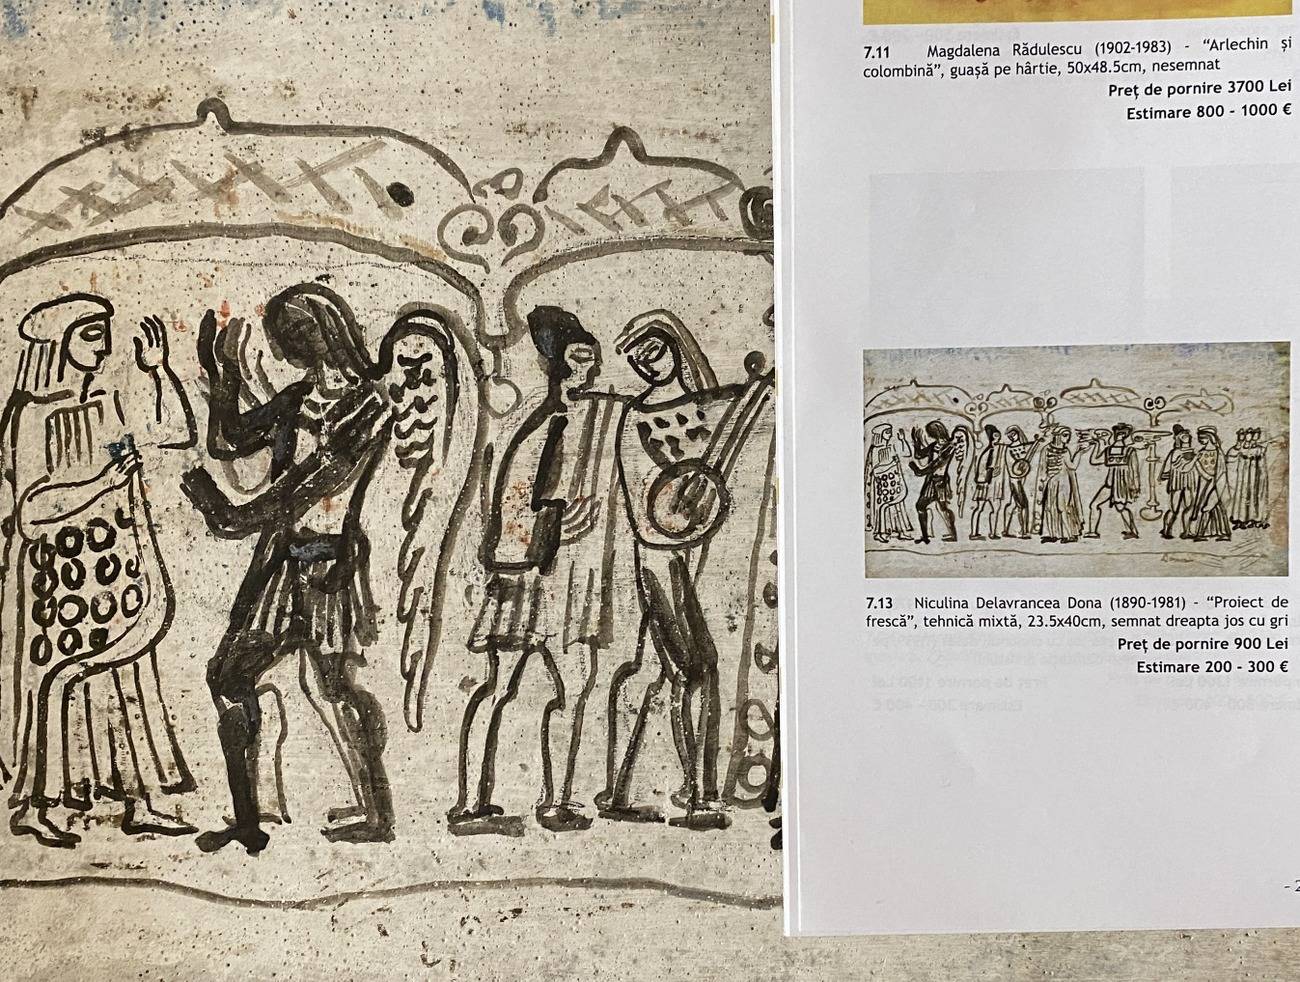 7.11 Magdalena Rădulescu (1902-1983) - “Arlechin și
colombină”, guașă pe hârtie, 50x48.5cm, nesemnat
Preț de pornire 3700 Lei
Estimare 800 - 1000 €
7.13 Niculina Delavrancea Dona (1890-1981) - “Proiect de
frescă”, tehnică mixtă, 23.5x40cm, semnat dreapta jos cu gri
Preț de pornire 900 Lei
Estimare 200 - 300 €